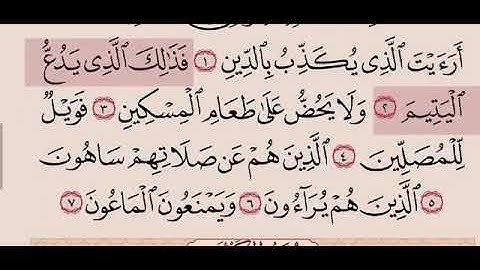 أَرَءَيْتَ ٱلَّذِى يُكَذِّبُ بِٱلدِّينِ ١ فَذَٰلِكَ ٱلَّذِى يَدُعُّ
ٱلْيَتِيمَ ٢ وَلَا يَحُضُّ عَلَىٰ طَعَامِ ٱلْمِسْكِينِ ٣ فَوَيْلٌ
لِّلْمُصَلِّينَ ٤ ٱلَّذِينَ هُمْ عَن صَلَاتِهِمْ سَاهُونَ
٥ ٱلَّذِينَ هُمْ يُرَآءُونَ ٦ وَيَمْنَعُونَ ٱلْمَاعُونَ ٧